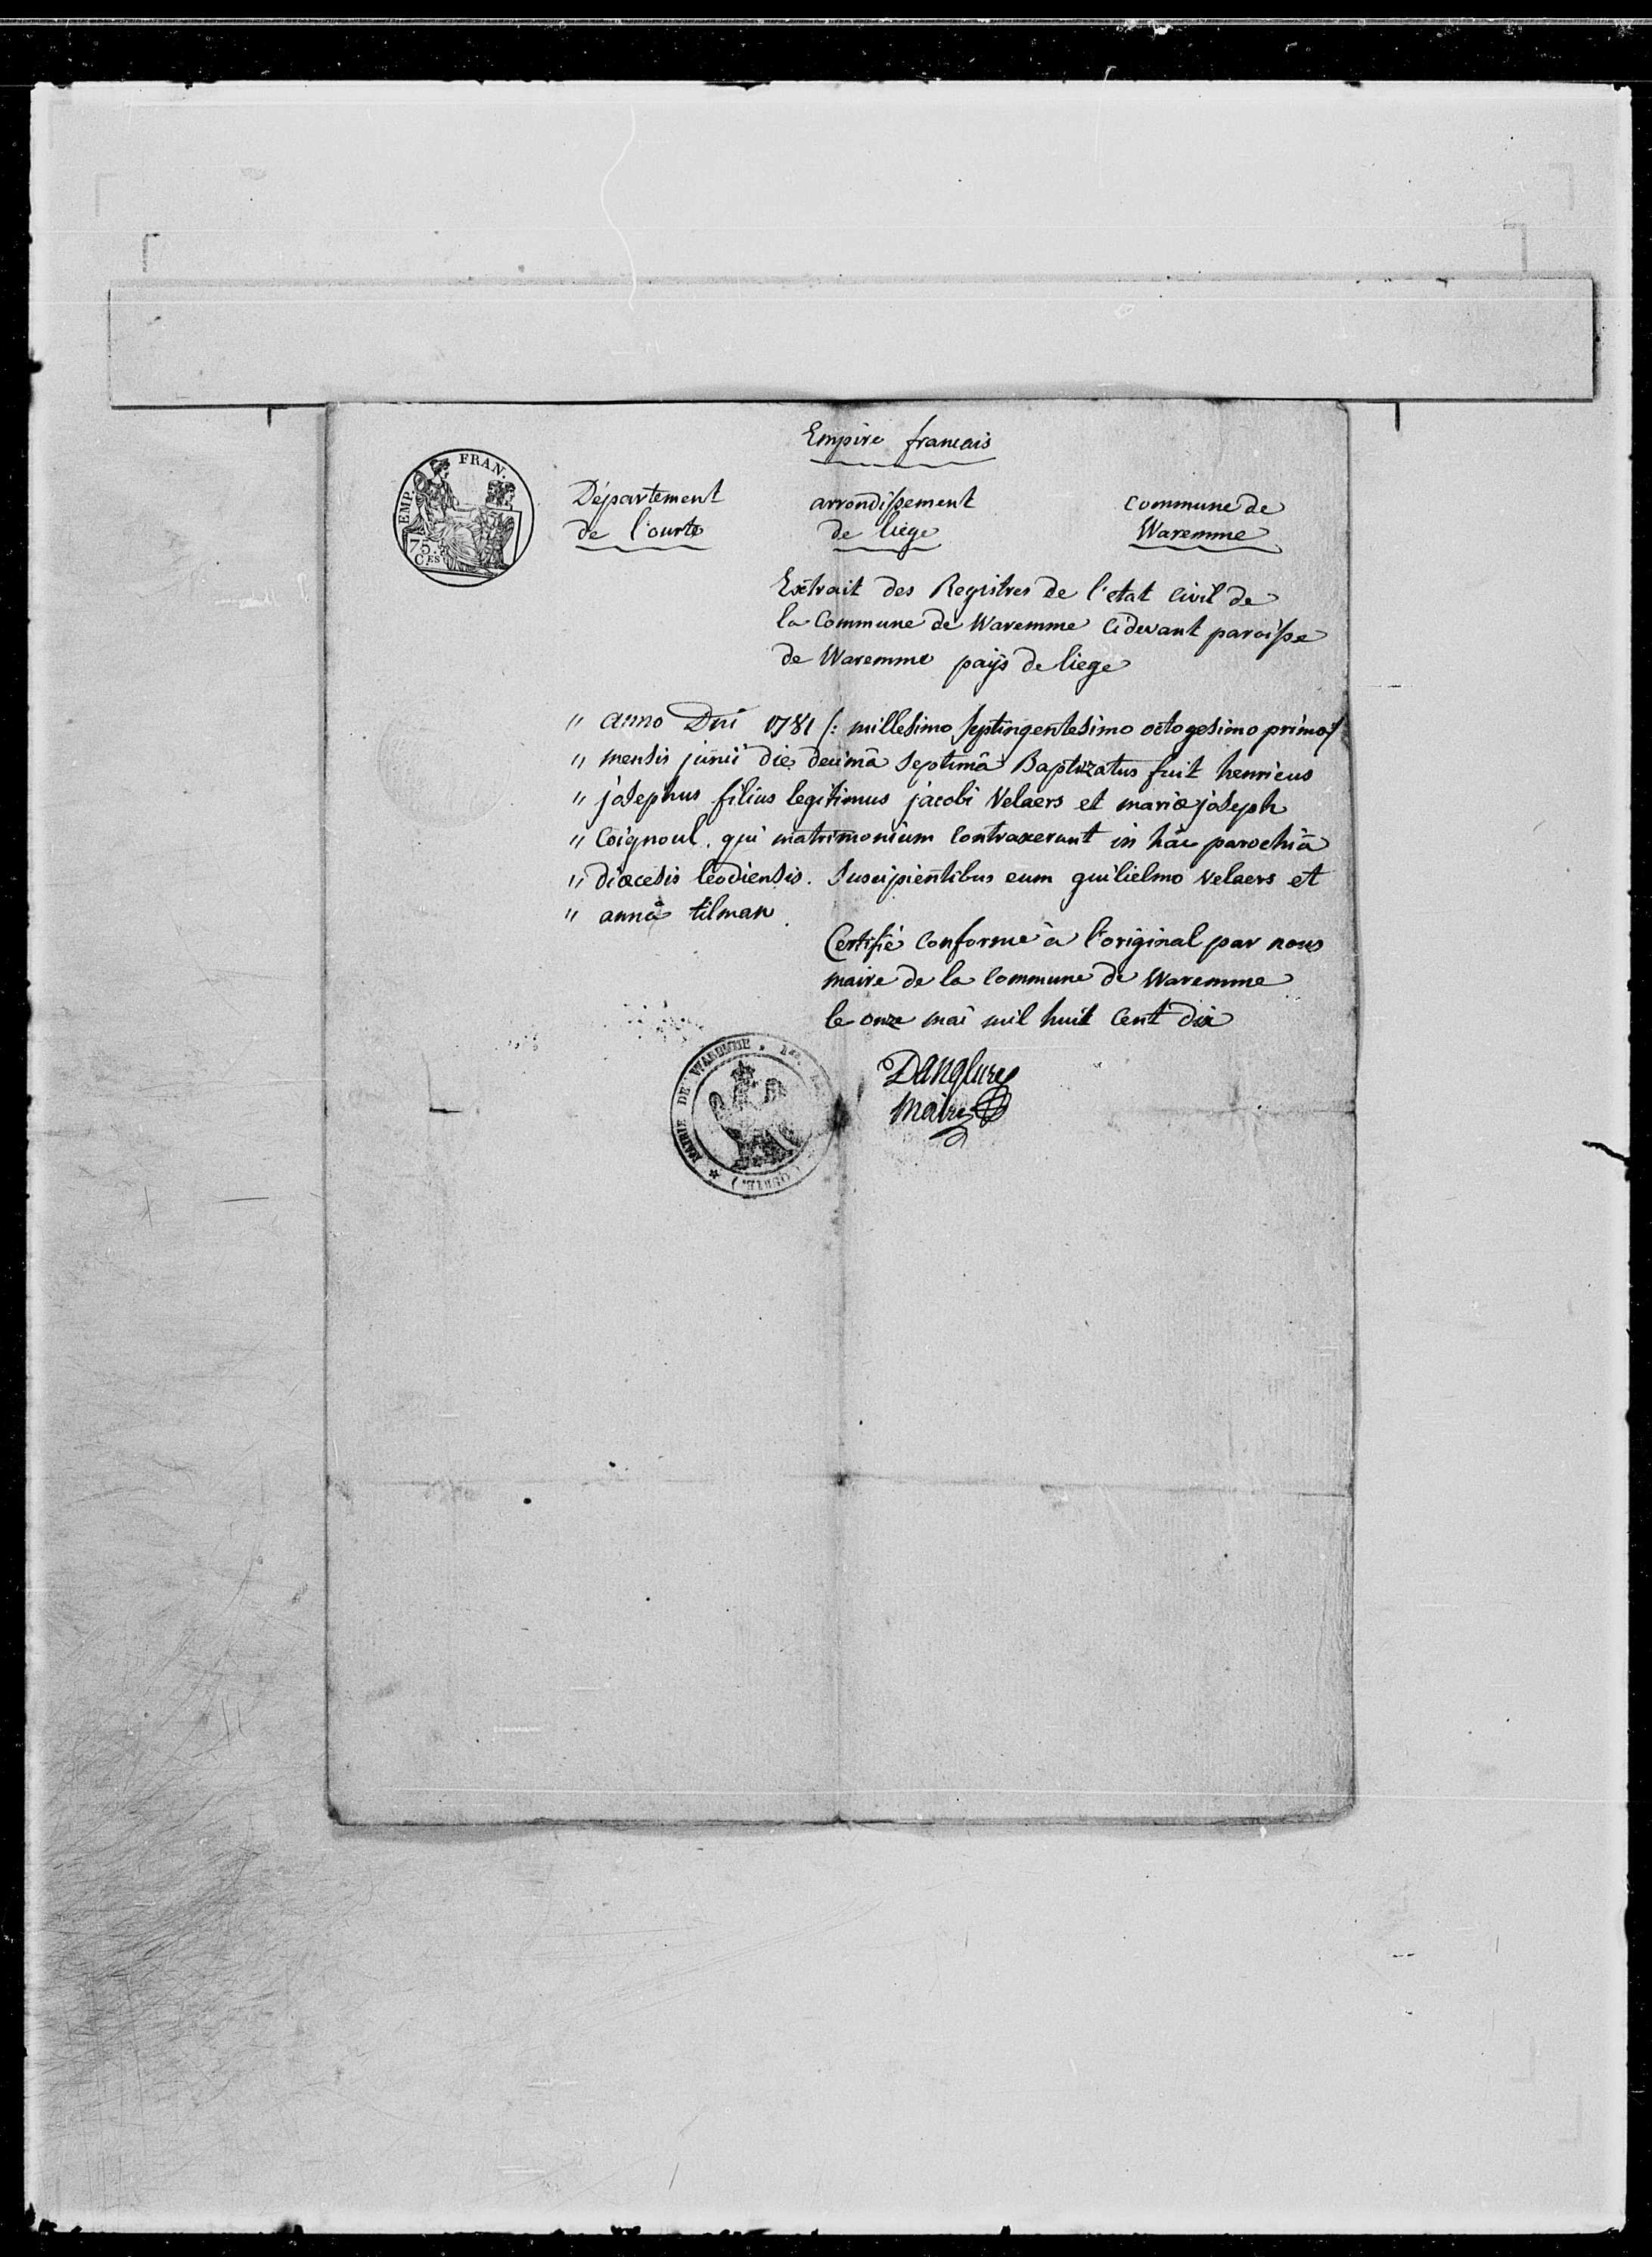 Empire francais
EMP. FRAN.
75.
CES
Département arrondissement Commune de
de l'ourte de liége Waremme
Extrait des Registres de l'etat Civil de
la Commune de Waremme Cidevant paroisse
de Waremme paÿs de liege
" anno Dni 1781 /: millesimo septingentesimo octogesimo primo/
" mensis junii die decimâ septimâ Baptizatus fuit henricus
" josephus filius legitimus jacobi Velaers et mariæ joseph
" Coignoul. qui matrimonium Contraxerunt in hâc parochiâ
" diœcesis leodiensis. Suscipientibus eum guilielmo velaers et
" annâ tilman.
Certifié Conforme à l'original par nous
maire de la Commune de Waremme
le onze mai mil huit Cent dix
MAIRIE DE WAREMME.
Danglure
maire